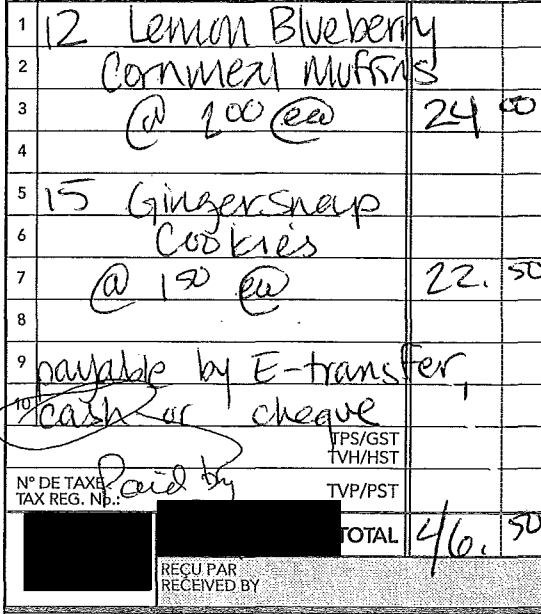 1 12 Lemon Blueberry
2 Cornmeal Muffins
3 @ 2 00 ea 24 00
4
5 15 Gingersnap
6 Cookies
7 @ 1 50 ea 22. 50
8
9 payable by E-transfer,
10 cash or cheque
TPS/GST
TVH/HST
Paid by
N° DE TAXE
TAX REG. No.:
TVP/PST
TOTAL 46. 50
REÇU PAR
RECEIVED BY